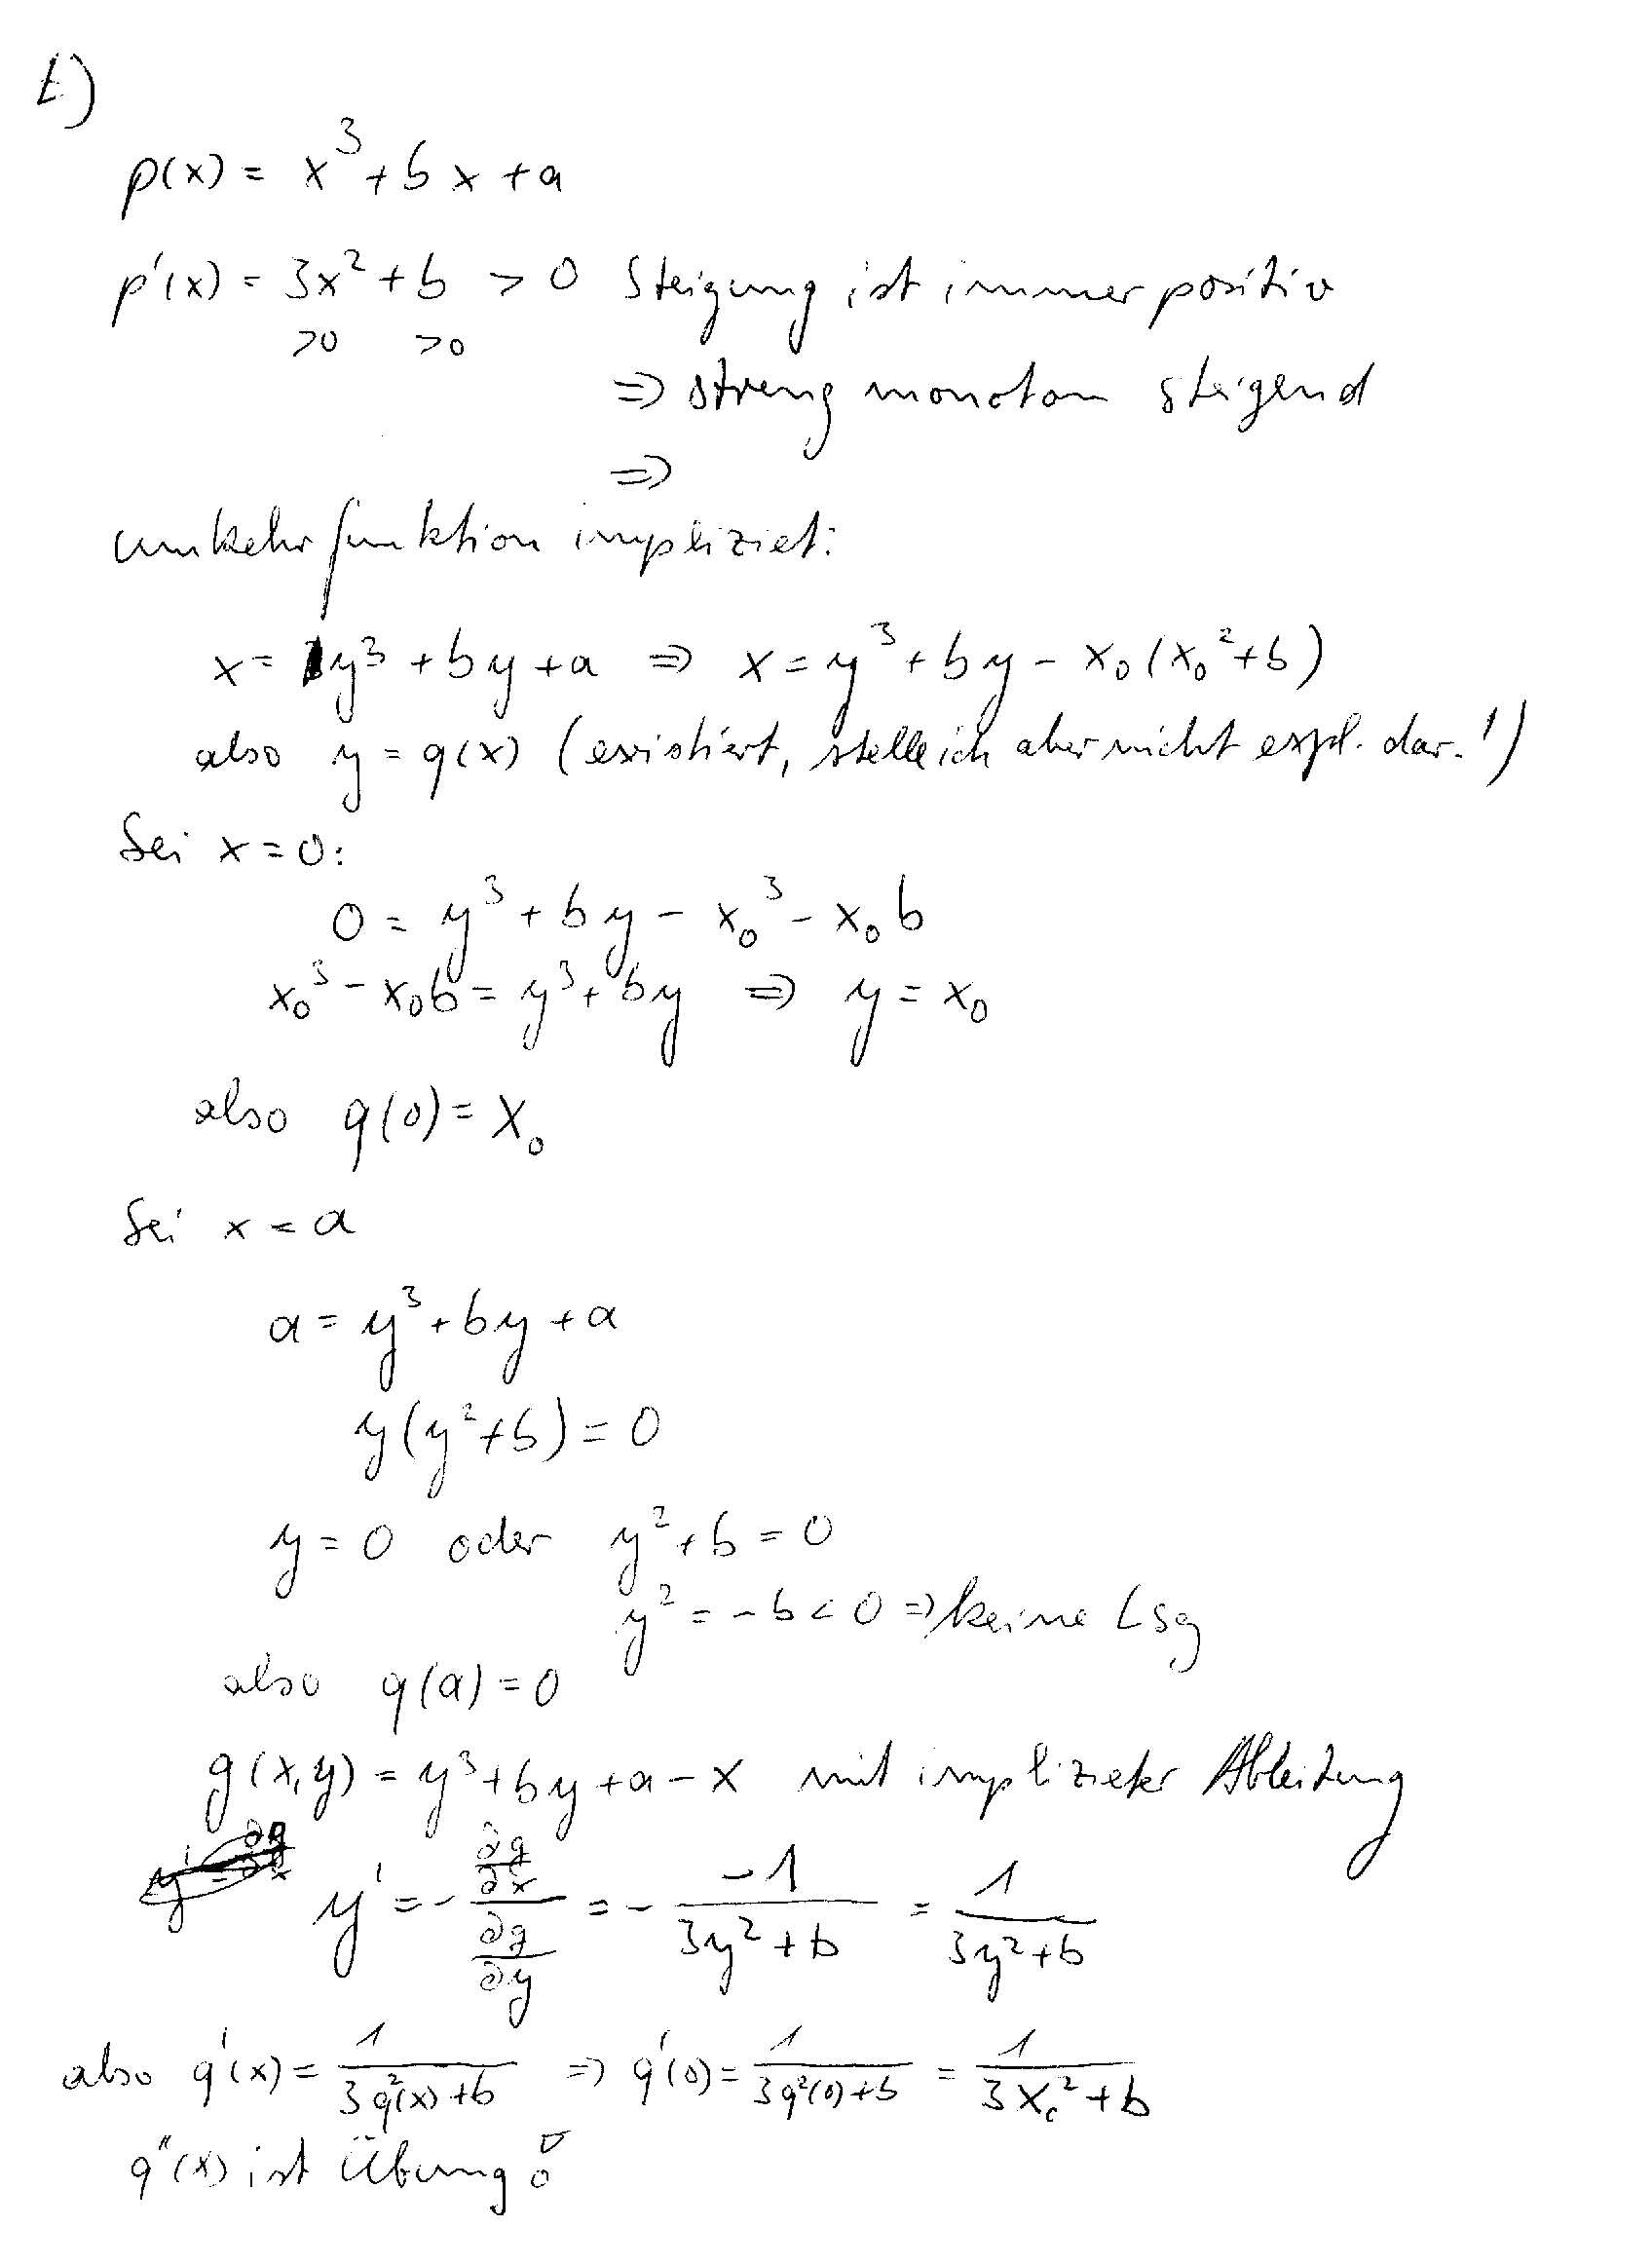 t)
p(x) = x³ + b x + a
p'(x) = 3x² + b > 0 Steigung ist immer positiv
>0 >0
=> streng monoton steigend
=>
Umkehrfunktion impliziet:
x = y³ + by + a => x = y³ + by - x₀(x₀² + b)
also y = q(x) (existiert, stelle ich aber nicht expl. dar.!)
Sei x = 0:
0 = y³ + by - x₀³ - x₀b
x₀³ - x₀b = y³ + by => y = x₀
also q(0) = x₀
Sei x = a
a = y³ + by + a
y(y² + b) = 0
y = 0 oder y² + b = 0
y² = -b < 0 => keine Lsg
also q(a) = 0
g(x,y) = y³ + by + a - x mit implizieter Ableitung
y' = - (∂g/∂x)/(∂g/∂y) = - (-1)/(3y² + b) = 1/(3y² + b)
also q'(x) = 1/(3q²(x) + b) => q'(0) = 1/(3q²(0) + b) = 1/(3x₀² + b)
q''(x) ist Übung!